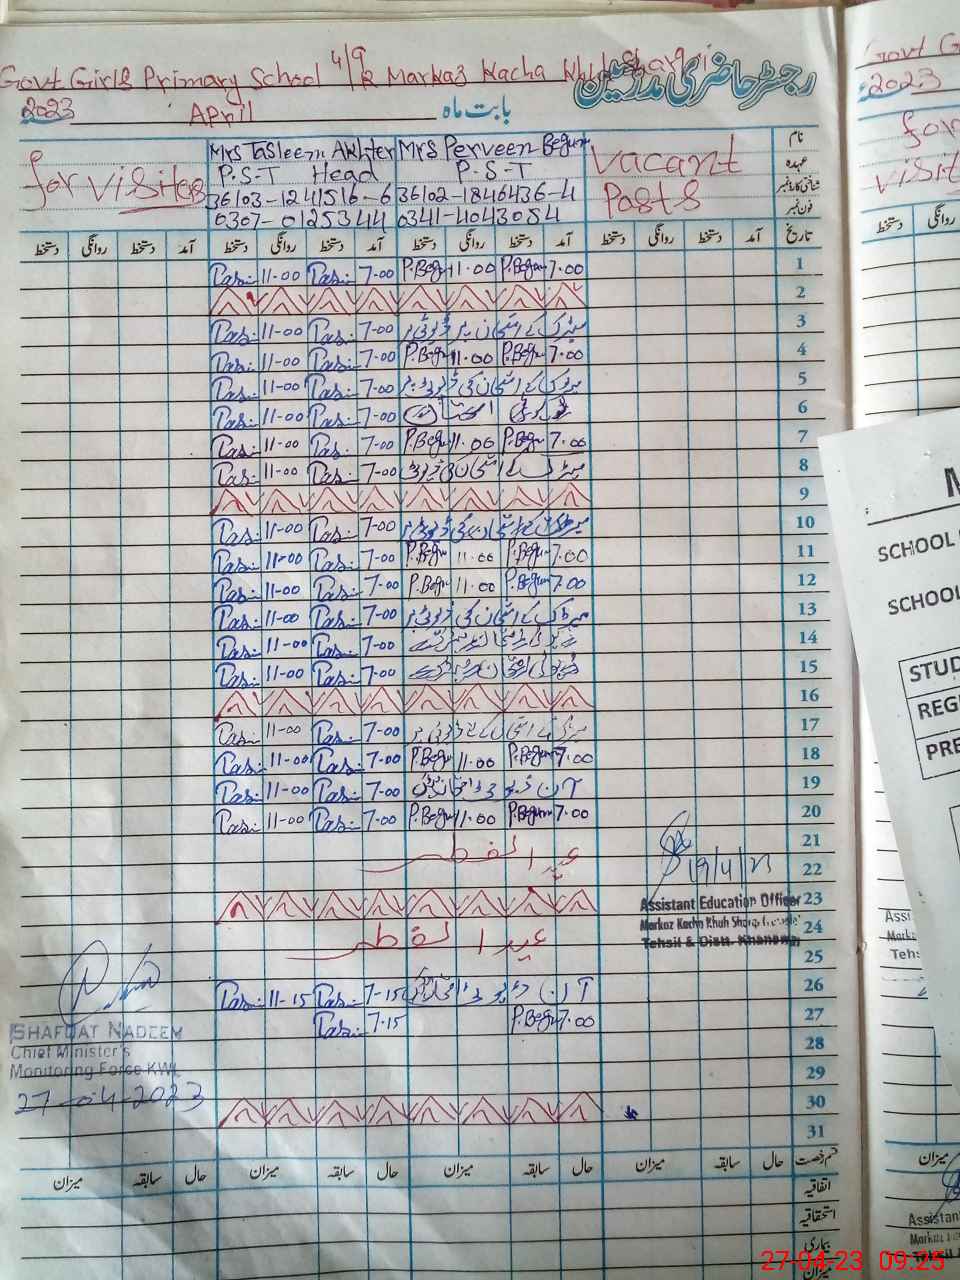 Govt Girls Primary School 4/9 R Markaz Kacha Khuh Sharqi
رجسٹر حاضری مدرسین
2023 April بابت ماہ
for visitors
Mrs Tasleem Akhter Mrs Perveen Begum
P.S.T Head P.S.T
36103-1241516-6 36102-1846436-4
0307-0125344 0341-4043054
Vacant
Posts
نام
عہدہ
شناختی کارڈ نمبر
فون نمبر
تاریخ آمد دستخط روانگی دستخط آمد دستخط روانگی دستخط آمد دستخط روانگی دستخط آمد دستخط روانگی دستخط
Tas: 11-00 Tas: 7-00 P.Begum 11.00 P.Begum 7.00 1
2
Tas: 11-00 Tas: 7-00 میٹرک کے امتحان پر ڈیوٹی پر 3
Tas: 11-00 Tas: 7-00 P.Begum 11.00 P.Begum 7.00 4
Tas: 11-00 Tas: 7-00 میٹرک کے امتحان کی ڈیوٹی پر 5
Tas: 11-00 Tas: 7-00 6
Tas: 11-00 Tas: 7-00 P.Begum 11.00 P.Begum 7.00 7
Tas: 11-00 Tas: 7-00 میٹرک کے امتحان کی ڈیوٹی 8
9
Tas: 11-00 Tas: 7-00 میٹرک کے امتحان کی ڈیوٹی پر 10
Tas: 11-00 Tas: 7-00 P.Begum 11.00 P.Begum 7.00 11
Tas: 11-00 Tas: 7-00 P.Begum 11.00 P.Begum 7.00 12
Tas: 11-00 Tas: 7-00 میٹرک کے امتحان کی ڈیوٹی پر 13
Tas: 11-00 Tas: 7-00 14
Tas: 11-00 Tas: 7-00 15
16
Tas: 11-00 Tas: 7-00 17
Tas: 11-00 Tas: 7-00 P.Begum 11.00 P.Begum 7.00 18
Tas: 11-00 Tas: 7-00 آن ڈیوٹی 19
Tas: 11-00 Tas: 7-00 P.Begum 11.00 P.Begum 7.00 20
21
عید الفطر 22
19/4/23
23
Assistant Education Officer
Markaz Kacha Khuh Sharqi
Tehsil & Distt. Khanewal
عید الفطر 24
25
Tas: 11-15 Tas: 7-15 آن ڈیوٹی 26
Tas: 7-15 P.Begum 7.00 27
28
29
30
31
SHAFQAT NADEEM
Chief Minister's
Monitoring Force KWL
27-04-2023
قسم رخصت حال سابقہ میزان حال سابقہ میزان حال سابقہ میزان حال سابقہ میزان
اتفاقیہ
استحقاقیہ
بیماری
میزان
Govt G
2023
for
visit
SCHOOL
SCHOOL
STUD
REGI
PRE
Assi
Marka
Tehs
میزان
Assistan
27-04-23 09:25